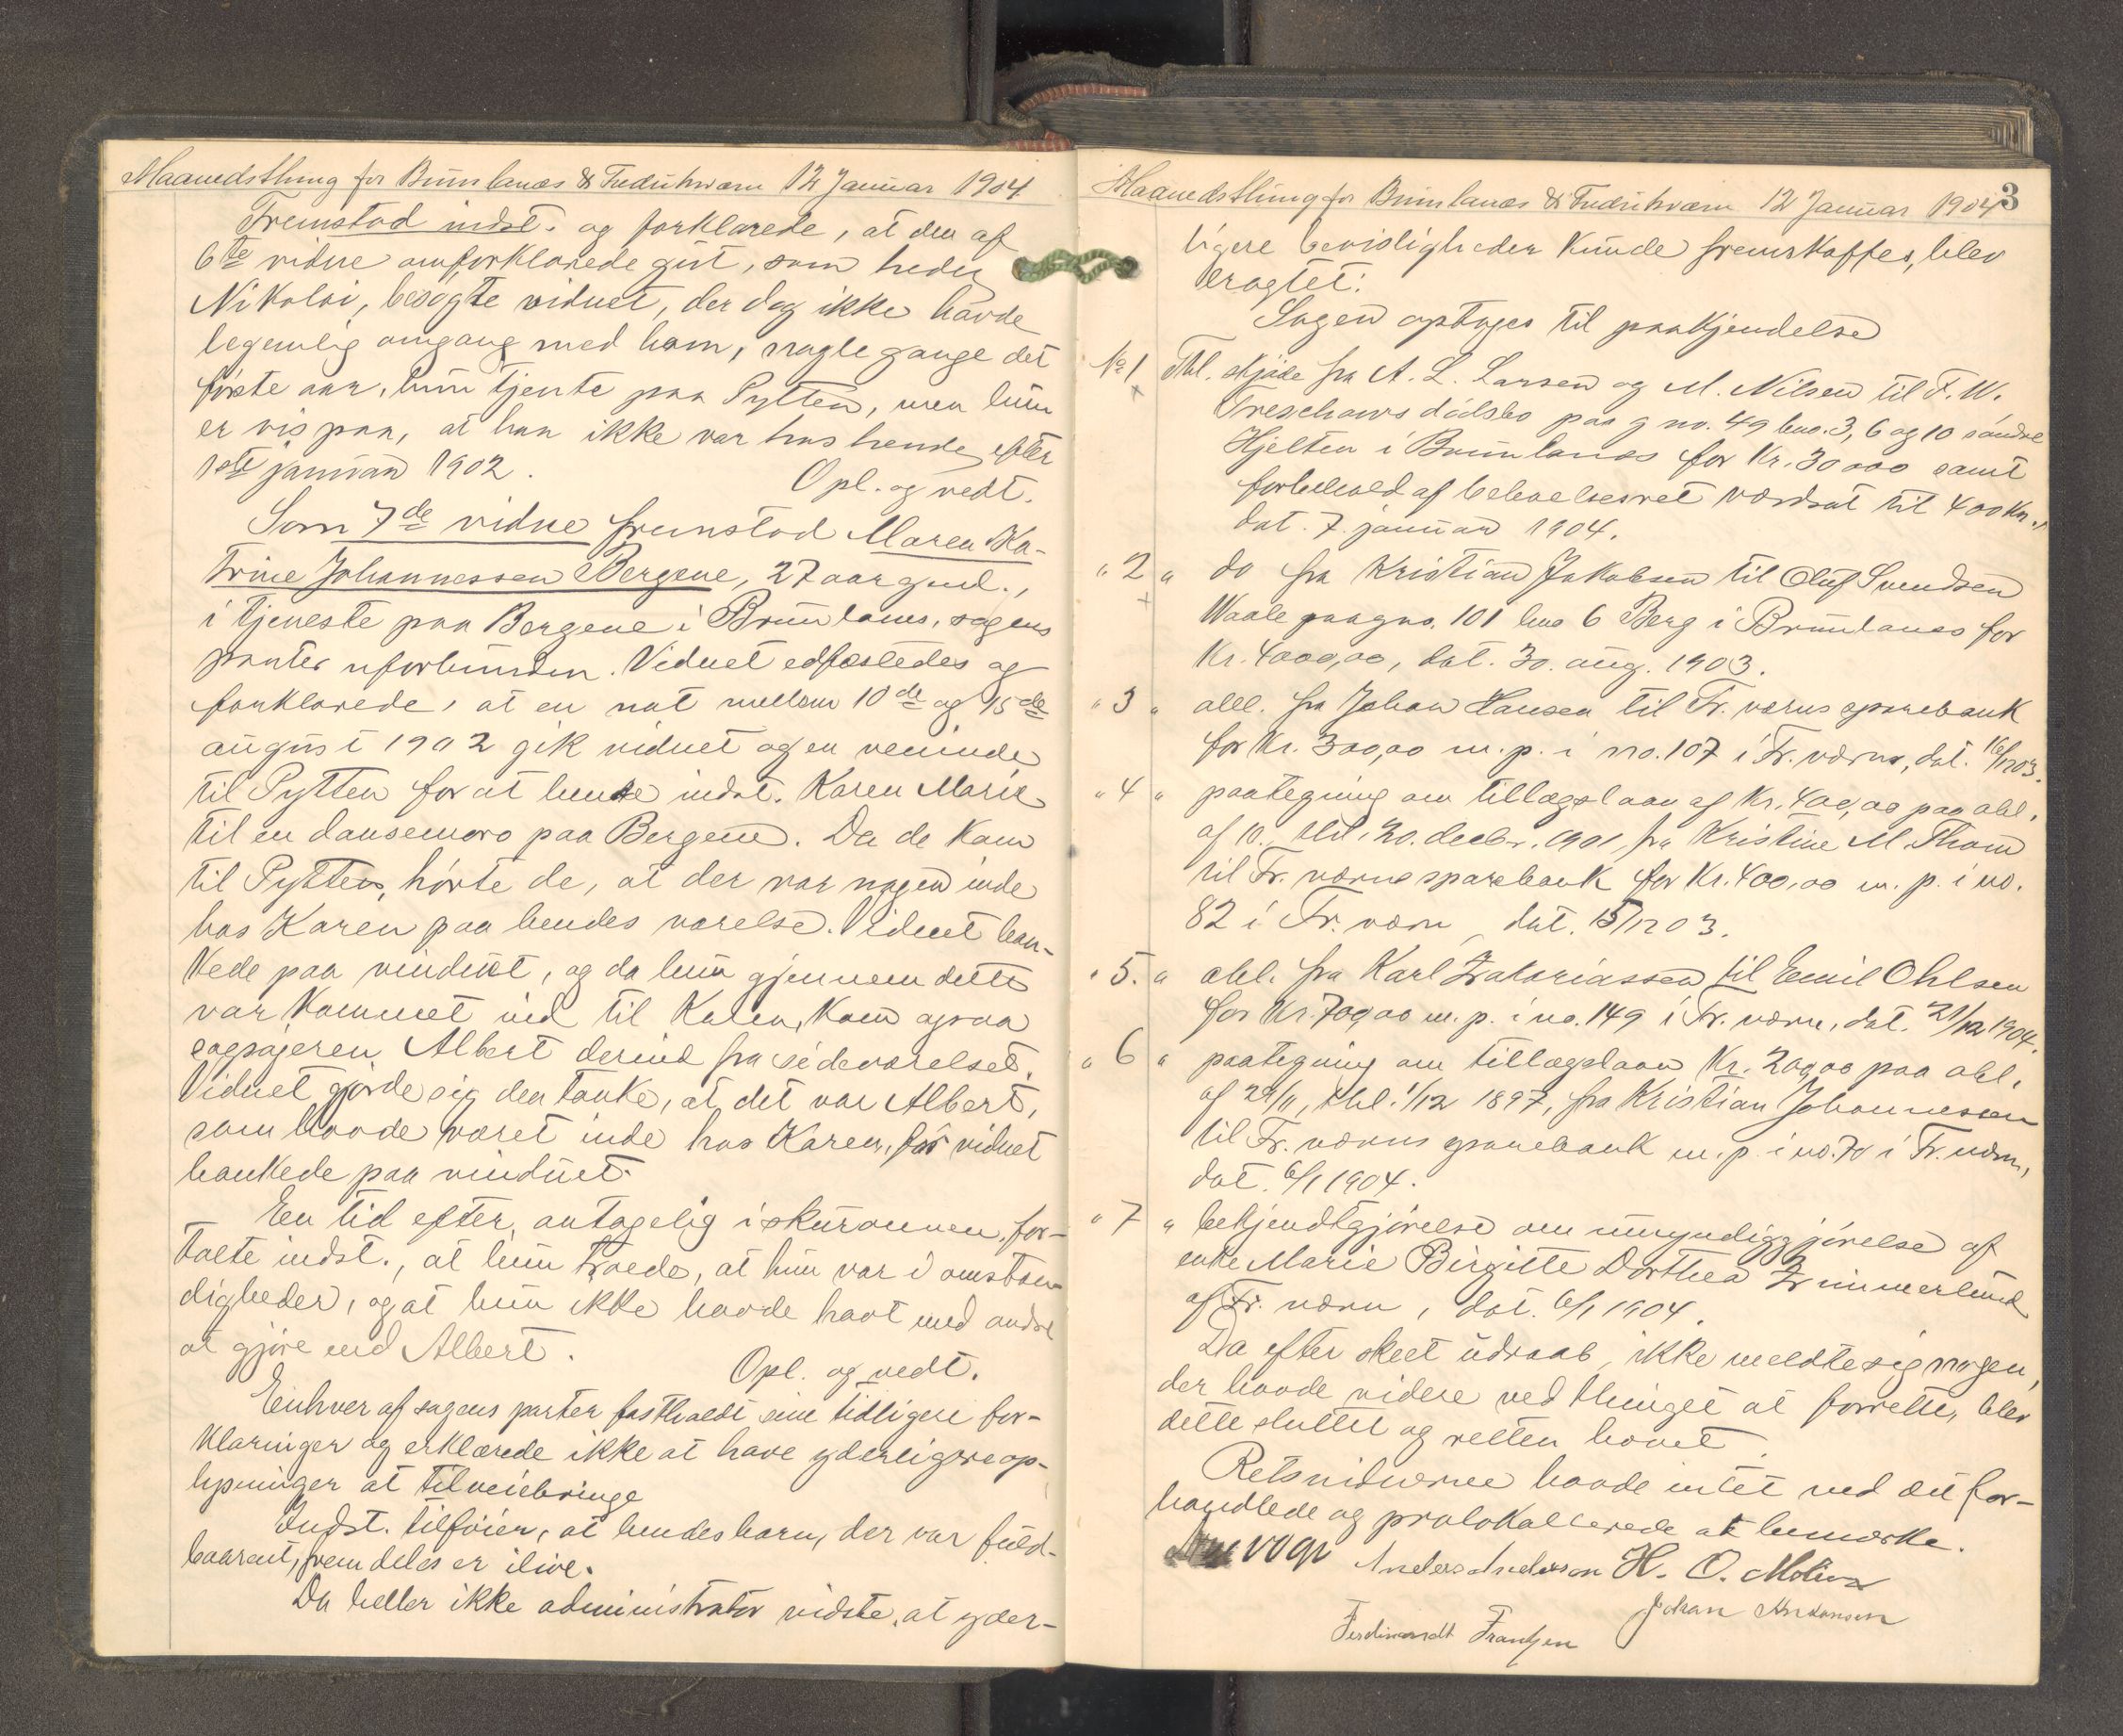 Maanedsthing for Brunlanæs & Fredriksværn 12 Januar 1904
Fremstod indst. og forklarede, at den af
6te vidne omforklarede gut, som heder
Nikolai, besøgte vidnet, der dog ikke havde
legemlig omgang med ham, nogle gange det
første aar, hun tjente paa Pytten, men hun
er vis paa, at han ikke var hos hende efter
1ste januar 1902.
Opl. og vedt.
Som 7de vidne fremstod Maren Ka-
trine Johannessen Bergene, 27 aar gml.,
i tjeneste paa Bergene i Brunlanes, sagens
parter uforbunden. Vidnet edfæstedes og
forklarede, at en nat mellem 10de og 15de
august 1902 gik vidnet og en veninde
til Pytten for at hente indst. Karen Marie
til en dansemoro paa Bergene. Da de kom
til Pytten, hørte de, at der var nogen inde
hos Karen paa hendes værelse. Vidnet ban-
kede paa vinduet, og da hun gjennem dette
var kommet ind til Karen, kom ogsaa
sagsøgeren Albert derind fra sideværelset.
Vidnet gjorde sig den tanke, at det var Albert,
som havde været inde hos Karen, før vidnet
bankede paa vinduet.
En tid efter, antagelig i skuronnen, for-
talte indst., at hun troede, at hun var i omstæn-
digheder, og at hun ikke havde havt med andre
at gjøre end Albert.
Opl. og vedt.
Enhver af sagens parter fastholdt sine tidligere for-
klaringer og erklærede ikke at have yderligere op-
lysninger at tilveiebringe
Indst. tilføier, at hendes barn, der var fuld-
baarent, fremdeles er ilive.
Da heller ikke administrator vidste, at yder-
Maanedsthing for Brunlanæs & Fredriksværn 12 Januar 1904
3
ligere bevisligheder kunde fremskaffes, blev
eragtet:
Sagen optages til paakjendelse
No 1 Thl. skjøde fra A. L. Larsen og M. Nilsen til F. W.
Treschows dødsbo paa g no. 49 bno. 3, 6 og 10 søndre
Hjelten i Brunlanes for Kr. 30000 samt
forbehold af beboelsesret værdsat til 400 Kr.,
dat. 7. januar 1904.
" 2 " do fra Kristian Jakobsen til Oluf Svendsen
Waale paa gno. 101 bno 6 Berg i Brunlanes for
Kr. 4000,00, dat. 30. aug. 1903.
" 3 " obl. fra Johan Hansen til Fr. værns sparebank
for Kr. 300,00 m. p. i no. 107 i Fr. værn, dat. 16/12 03.
" 4 " paategning om tillægslaan af Kr. 400,00 paa obl.
af 10., thl. 20. decbr. 1901, fra Kristine M. Thom
til Fr. værns sparebank for Kr. 400,00 m. p. i no.
82 i Fr. værn, dat. 15/12 03.
" 5. " obl. fra Karl Zakariassen til Emil Ohlsen
for Kr. 700,00 m. p. i no. 149 i Fr. værn, dat. 21/12 1904.
" 6 " paategning om tillægslaan Kr. 200,00 paa obl.
af 29/11, thl. 1/12 1897, fra Kristian Johannessen
til Fr. værns sparebank m. p. i no. 70 i Fr. værn,
dat. 6/1 1904.
" 7 " bekjendtgjørelse om umyndiggjørelse af
enke Marie Birgitte Dorthea Zimmerlund
af Fr. værn, dat. 6/1 1904.
Da efter skeet udraab, ikke meldte sig nogen,
der havde videre ved thinget at forrette, blev
dette sluttet og retten hævet.
Retsvidnerne havde intet ved det for-
handlede og protokollerede at bemærke.
Anders Anderson H. O. Molin
Johan Andersen
Ferdinandt Frantzen